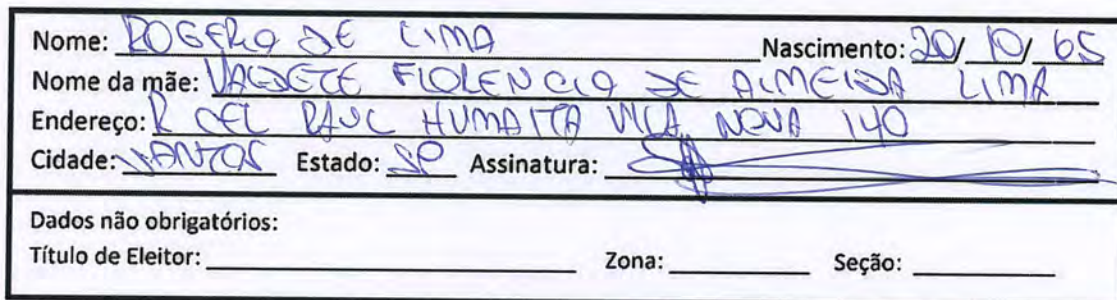 Nome: ROGERO DE LIMA Nascimento: 20/ 10/ 65
Nome da mãe: VALDETE FLOLENCIO DE ALMEIDA LIMA
Endereço: R CEL RAUL HUMAITA VILA NOVA 140
Cidade: SANTOS Estado: SP Assinatura:
Dados não obrigatórios:
Título de Eleitor: Zona: Seção: